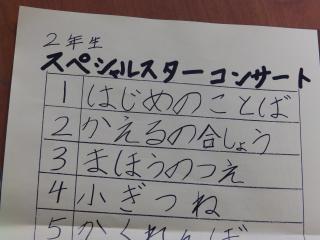 2年生
スペシャルスターコンサート
1 はじめのことば
2 かえるの合しょう
3 まほうのつえ
4 小ぎつね
5 かくれんぼ